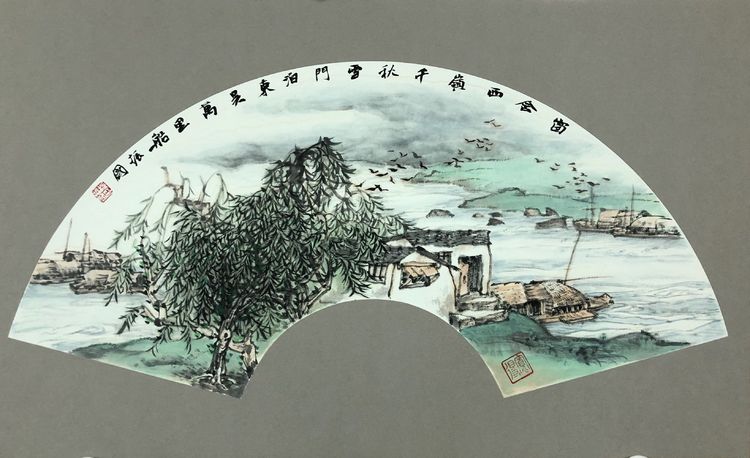 窗含西嶺千秋雪門泊東吴萬里船振國